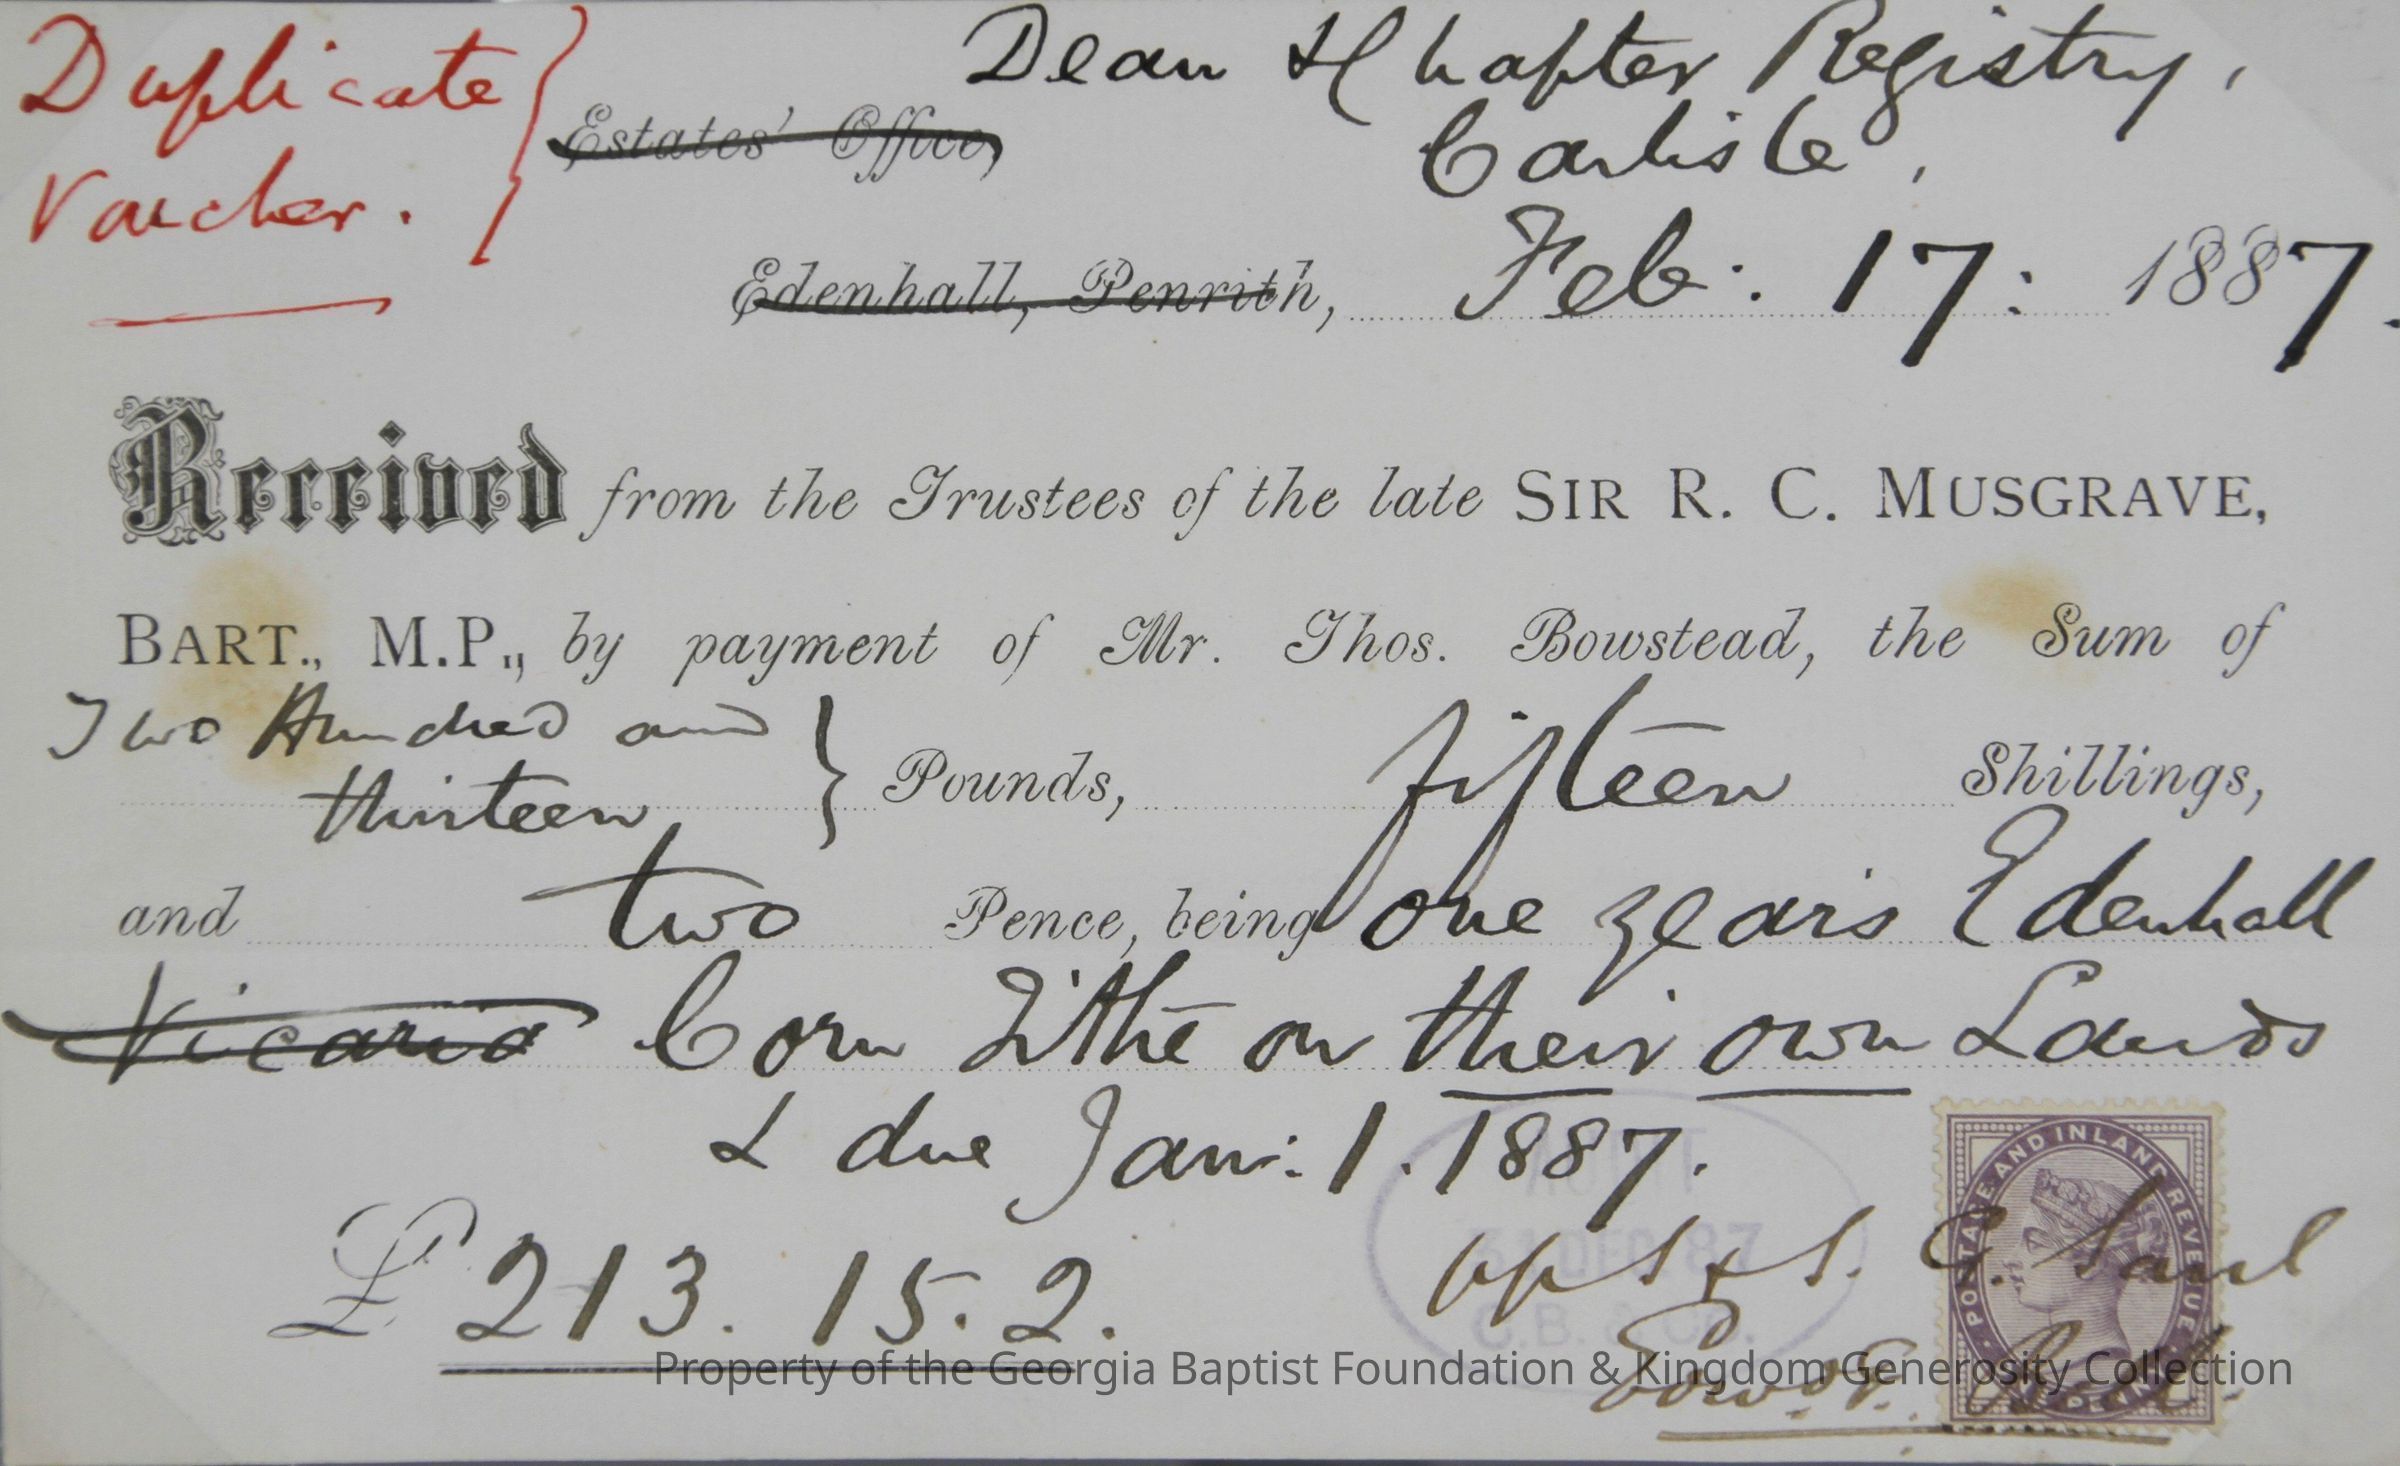 Duplicate
Voucher.
Dean & Chapter Registry,
Carlisle,
Estates' Office,
Edenhall, Penrith, Feb: 17: 1887.
Received from the Trustees of the late SIR R. C. MUSGRAVE,
BART., M.P., by payment of Mr. Thos. Bowstead, the Sum of
Two Hundred and
thirteen } Pounds, fifteen Shillings,
and two Pence, being one years Edenhall
Vicarial Corn Tithe on their own Lands
& due Jan: 1. 1887.
£213. 15. 2.
pp S & S. G. Saul
POSTAGE AND INLAND REVENUE
31 DEC 87
C.B. & Co.
Property of the Georgia Baptist Foundation & Kingdom Generosity Collection